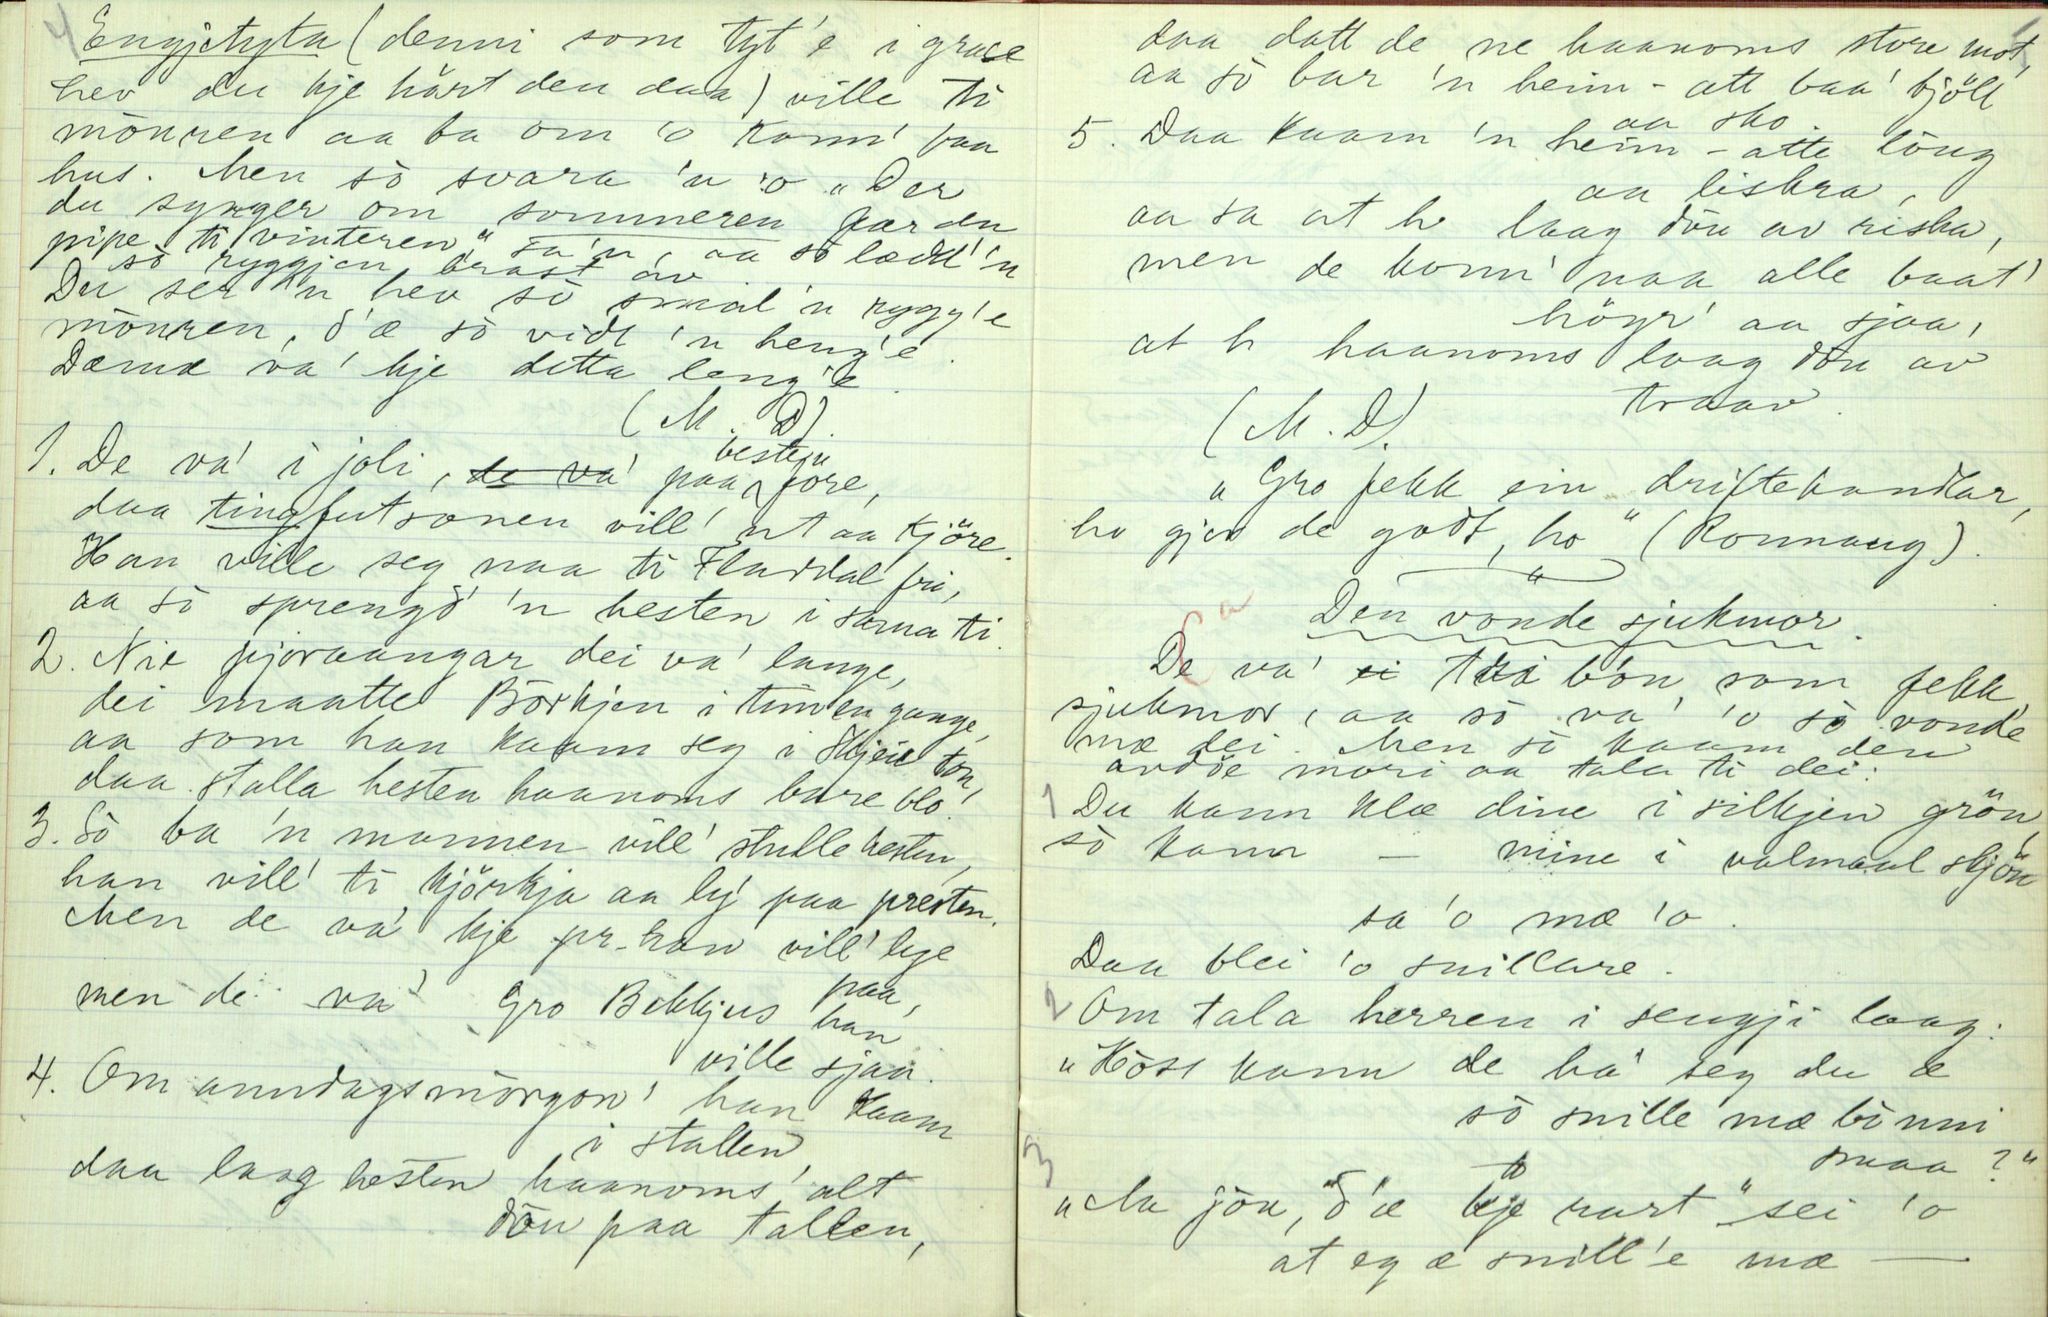 4 Engjetyta (denni som tyt'e i grase
hev du kje hört den daa) ville ti
mòuren aa ba om 'o kom' paa
hus. Men sò svara 'n 'o "Der
du synger om sommeren faar du
pipe ti vinteren", sa'n, aa sò lædd' 'n
sò ryggjen brast av
Du ser 'n hev sò smal 'n rygg'e
mòuren, d'æ sò vidt 'n heng'e.
Dæmæ va' kje detta leng'e.
(M. D).
1. De va' i joli, de va' paa bestejn fore,
daa tingfutsonen vill' ut aa kjöre.
Han ville seg naa ti Fladdal fri,
aa sò sprengd' 'n hesten i sama ti
2. Nie fjoraangar dei va' lange,
dei maatte Börkjen i timen gange,
aa som han kaam seg i Skjeie ton'
daa stalla hesten haanoms bare blo'.
3. Sò ba 'n mannen vill' stelle hesten,
han vill' ti kjörkja aa ly' paa presten.
Men de va' kje pr- han vill' lye
paa,
men de va' Gro Bekkjus han
ville sjaa.
4. Om anndagsmòrgon' han kaam
i stallen
daa laag hesten haanoms' alt
dòu paa tallen,
daa datt de ne haanoms store mot,
aa sò bar 'n heim - att baa' bjöll
aa sko.
5. Daa kaam 'n heim - atte töug
aa liskra,
aa sa at h laag dòu av riska,
men de konn' naa alle baat'
höyr' aa sjaa,
at h haanoms laag dòu av
traav.
(M. D).
"Gro fekk ein driftekandlar,
ho gjer de godt, ho" (Ronnaug).
Den vonde sjukmor.
De va' ei tvi bòn, som fekk
sjukmor, aa sò va' 'o sò vonde
mæ dei. Men sò kaam den
avdöe mori aa tala ti dei:
1 Du kann klæ dine i silkjen grön,
sò kann — mine i valmaal skjön
sa 'o mæ 'o.
Daa blei 'o snillare.
2 Om tala herren i sengji laag:
"Hòss kann de ha' seg du æ
sò snille mæ bònni
smaa?"
3 "Aa jòu, d'æ kje rart" sei 'o
at eg æ snill'e mæ —